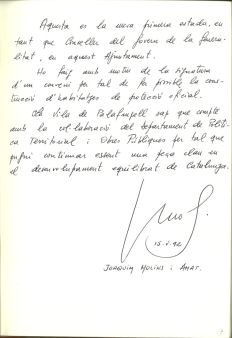 Aquesta es la meva primera estada, en
tant que Conseller del Govern de la Genera-
litat, en aquest Ajuntament.
Ho faig amb motiu de la signatura
d'un conveni per tal de fer possible la cons-
trucció d'habitatges de protecció oficial.
La Vila de Palafrugell sap que compta
amb la col·laboració del Departament de Políti-
ca Territorial i Obres Públiques per tal que
pugui continuar essent una peça clau en
el desenvolupament equilibrat de Catalunya.
15-V-92
JOAQUIM MOLINS i AMAT.